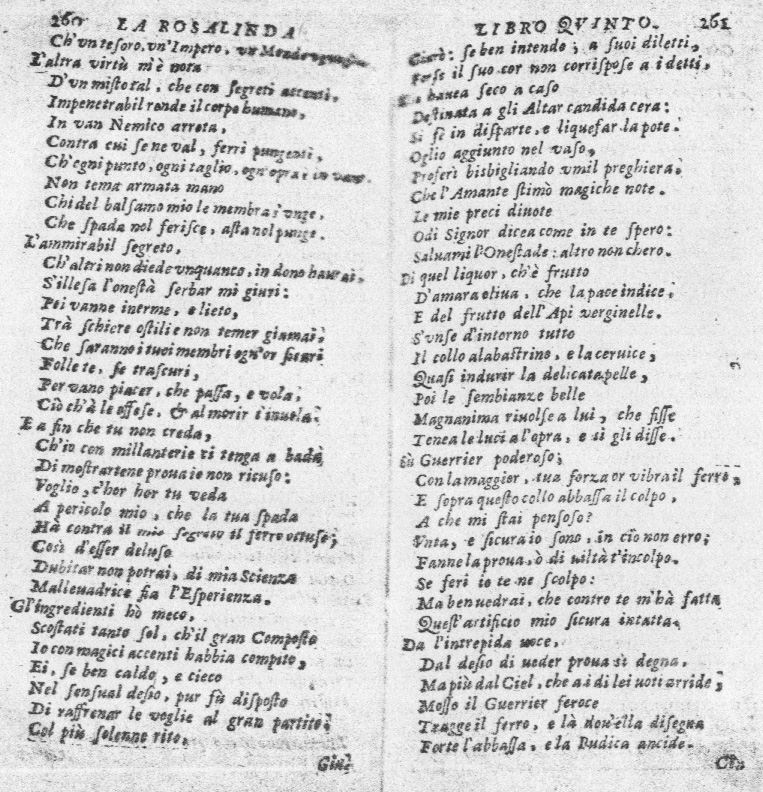 260 LA ROSALINDA
Ch'vn tesoro, vn'Impero, vn Mondo
L'altra virtù m'è nota
D'vn misto tal, che con segreti accenti,
Impenetrabil rende il corpo humano,
In van Nemico arrota,
Contra cui se ne val, ferri pungenti,
Ch'ogni punto, ogni taglio, ogn'opra; in vano.
Non tema armata mano
Chi del balsamo mio le membra s'vnge,
Che spada nol ferisce, asta nol punge.
L'ammirabil segreto,
Ch'altri non diede vnquanco, in dono haurai,
S'illesa l'onestà serbar mi giuri:
Poi vanne inerme, e lieto,
Trà schiere ostili e non temer giamai;
Che saranno i tuoi membri ogn'or sicuri
Folle te, se trascuri,
Per vano piacer, che passa, e vola,
Ciò ch'à le offese, & al morir t'inuola.
E a fin che tu non creda,
Ch'io con millanterie ti tenga a bada
Di mostrartene proua io non ricuso:
Voglio, c'hor hor tu veda
A pericolo mio, che la tua spada
Hà contra il mio segreto il ferro ottuso;
Così d'esser deluso
Dubitar non potrai, di mia Scienza
Malleuadrice fia l'Esperienza.
Gl'ingredienti hò meco,
Scostati tanto sol, ch'il gran Composto
Io con magici accenti habbia compito,
Ei, se ben caldo, e cieco
Nel sensual desio, pur fù disposto
Di raffrenar le voglie al gran partito;
Col più solenne rito,
Giu-
LIBRO QVINTO. 261
Giurò: se ben intendo; a suoi diletti,
Forse il suo cor non corrispose a i detti,
hauea seco a caso
Destinata a gli Altar candida cera:
Si fè in disparte, e liquefar la pote.
Oglio aggiunto nel vaso,
Proferì bisbigliando vmil preghiera,
Che l'Amante stimò magiche note.
Le mie preci diuote
Odi Signor dicea come in te spero:
Saluami l'Onestade: altro non chero.
Di quel liquor, ch'è frutto
D'amara oliua, che la pace indice,
E del frutto dell'Api verginelle.
S'vnse d'intorno tutto
Il collo alabastrino, e la ceruice,
Quasi indurir la delicata pelle,
Poi le sembianze belle
Magnanima riuolse a lui, che fisse
Tenea le luci a l'opra, e sì gli disse.
Sù Guerrier poderoso;
Con la maggior, tua forza or vibra il ferro,
E sopra questo collo abbassa il colpo,
A che mi stai pensoso?
Vnta, e sicura io sono, in ciò non erro;
Fanne la proua, ò di viltà t'incolpo.
Se feri io te ne scolpo:
Ma ben uedrai, che contro te m'hà fatta
Quest'artificio mio sicura intatta.
Da l'intrepida uoce,
Dal desio di ueder proua sì degna,
Ma più dal Ciel, che a i di lei uoti arride;
Mosso il Guerrier feroce
Tragge il ferro, e là dou'ella disegna
Forte l'abbassa, e la Pudica ancide.